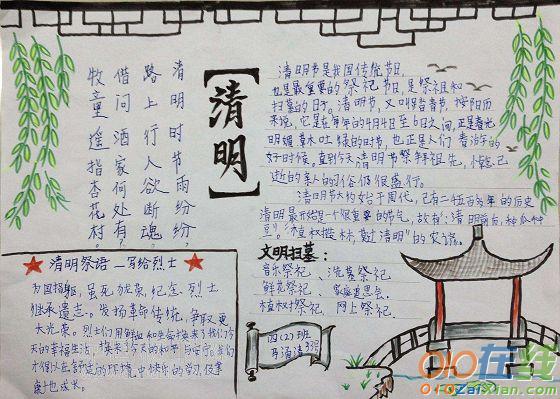 清明时节雨纷纷，
路上行人欲断魂，
借问酒家何处有，
牧童遥指杏花村。
【清明】
清明节是我国传统节日，
也是最重要的祭祀节日，是祭祖和
扫墓的日子。清明节，又叫踏青节，按阳历
来说，它是在每年的4月4日至6日之间，正是春光
明媚草木吐绿的时节，也正是人们春游的
好时候，直到今天清明节祭拜祖先，悼念已
逝的亲人的习俗仍很盛行。
清明节大约始于周代，已有二千五百多年的历史
清明最开始是个很重要的节气，故有：“清明前后，种瓜种
豆”。“植树造林，莫过清明”的农谚。
文明扫墓：
音乐祭祀、洗墓祭祀
鲜花祭祀、家庭追思会
植树祭祀、网上祭祀。
清明祭语—写给烈士
为国捐躯，虽死犹荣，纪念烈士
继承遗志。发扬革命传统，争取更
大光荣。烈士们用鲜血和生命换来了我们今
天的幸福生活，换来了今天的和平与安宁。我们
才得以在舒适的环境中快乐的学习，健康
四(2)班
010在线
010Zaixian.com